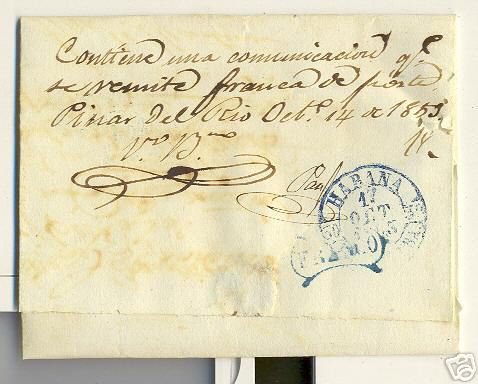 Contiene una comunicacion qe.
se remite franca de porte.
Pinar del Rio Octe. 14 de 1855.
Vo. Bno
HABANA
17
OCT
FRANCO
ebY